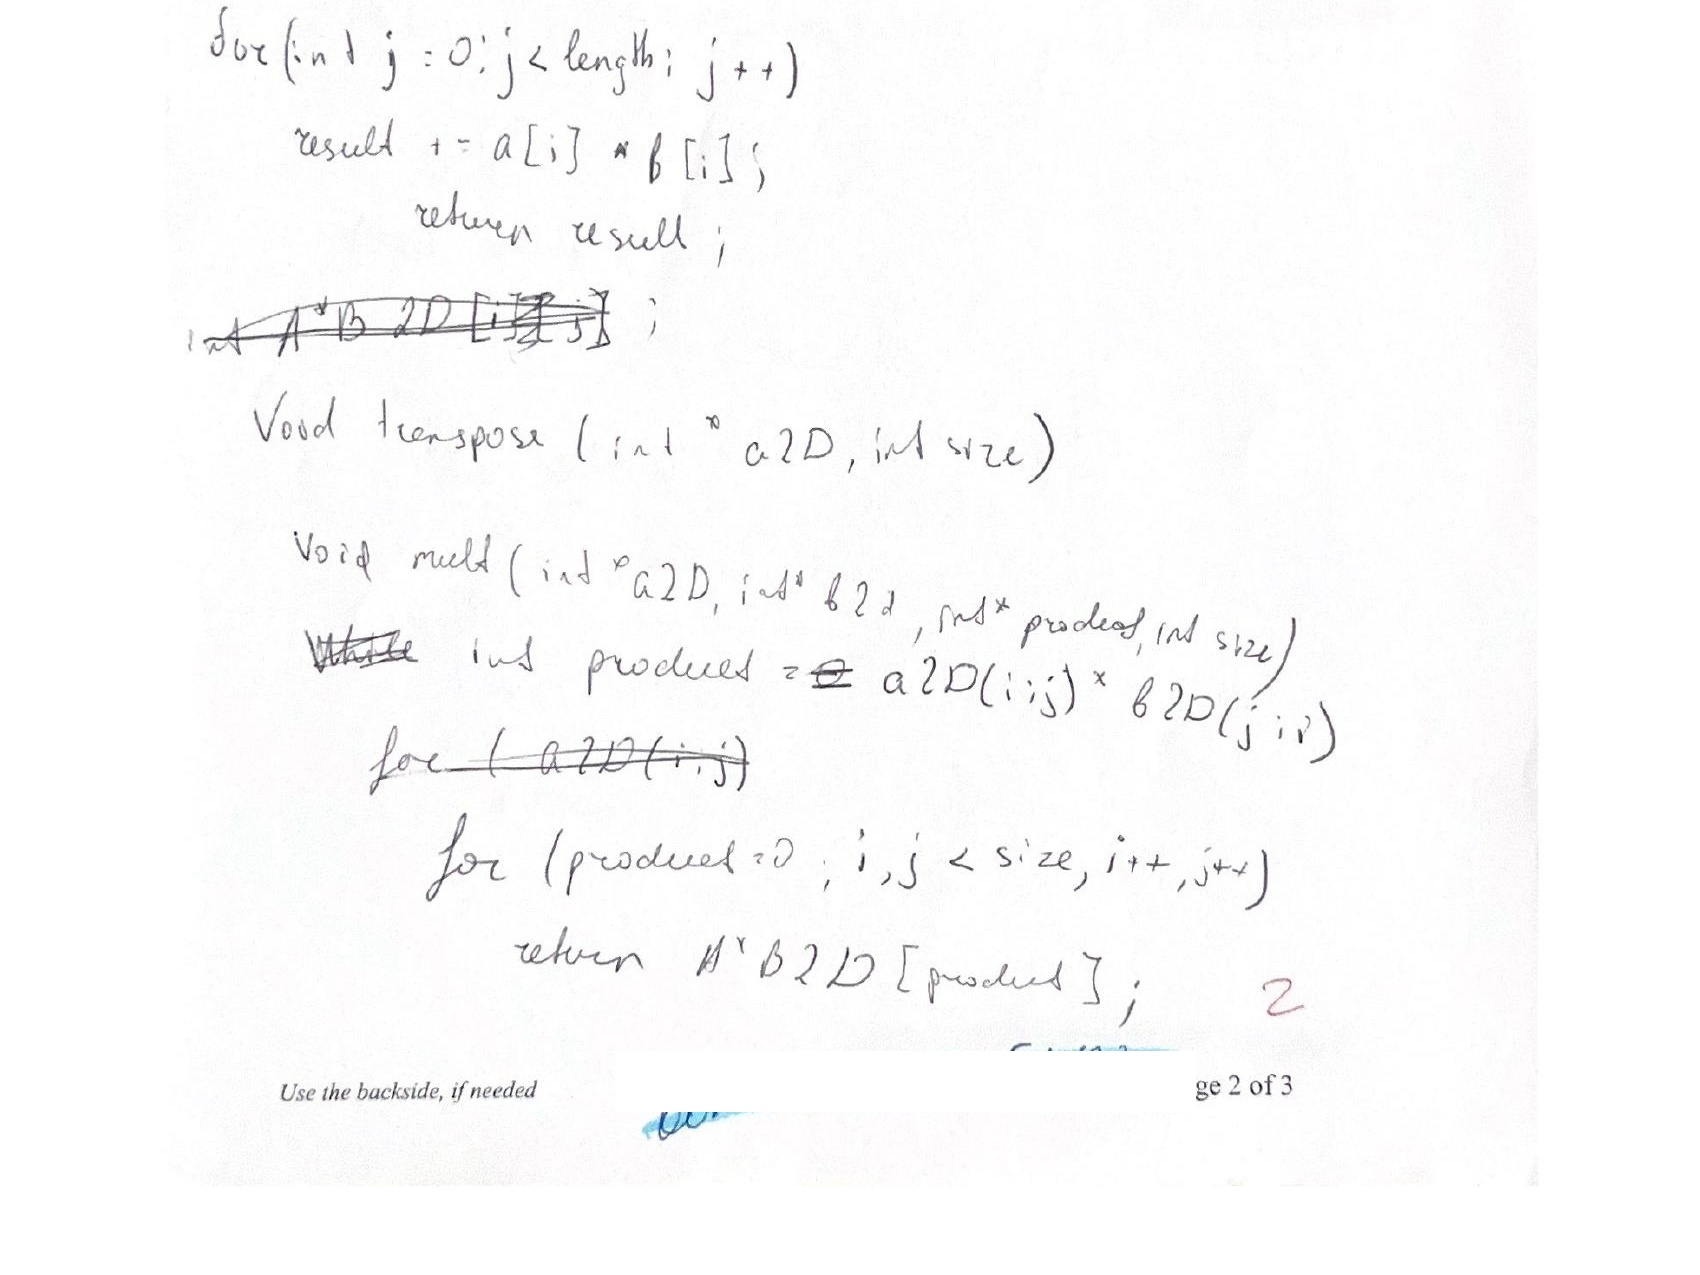 for (int j = 0; j < length; j++)
result += a[i] * b[i];
return result;
int A*B 2D [i][j] ;
Void transpose (int * a2D, int size)
Void mult (int *a2D, int* b2d, int* product, int size)
While int product = 0 a2D(i;j) * b2D(j;i)
for ( a2D(i;j)
for (product=0; i,j < size, i++, j++)
return A*B2D [product];
2
Use the backside, if needed
ge 2 of 3